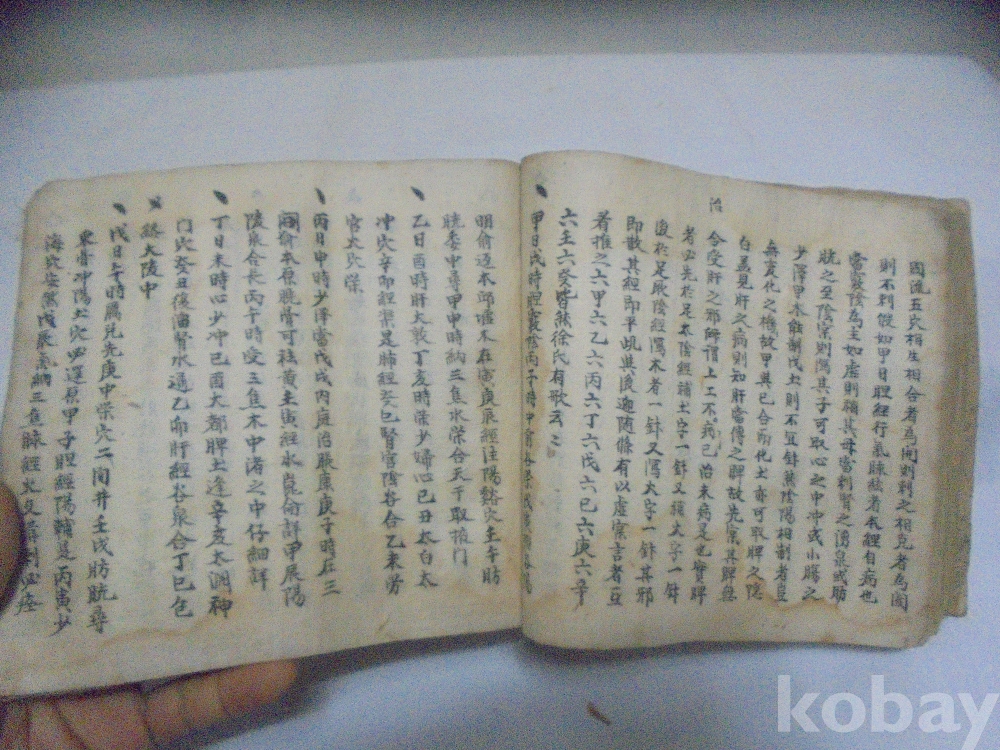 國流五穴相生相合者爲開則刺之相克者爲闔
則不刺假如甲日胆經行氣脉絃者本經自病也
當竅陰爲主如虛則補其母當刺腎之湧泉或膀
胱之至陰宲則瀉其子可取心之中冲或小膓之
少澤甲木能制戊土則不宜針葢陰陽相制者豆
無変化之機故甲與己合而化土亦可取脾之隐
白葢見肝之病則知肝當傳之脾故先宲其脾無
治
令受肝之邪師謂上工不病已治未病是也實脾
者必先於足太陰經補土字一針又補火字一針
後於足厥陰經瀉木者一針又瀉火字一針其邪
即散其經即平此與後遍隨條有以虛宲言者豆
着推之六甲六乙六丙六丁六戊六己六庚六辛
六壬六癸皆然徐氏有歌云
甲日戌時胆竅陰丙子時中前谷滎戊
明俞过本邱墟木在寅庚辰經注陽谿穴壬午膀
胱委中尋甲申時納三焦水滎合天干取液門
乙日酉時肝大敦丁亥時滎少府心己丑太白太
冲穴辛卯經渠是肺經癸巳腎宮陰谷合乙未勞
宮火穴滎
丙日申時少澤當戊戌內庭治脹康庚子時在三
間俞本原腕骨可祛黃壬寅經水崑侖詳甲辰陽
陵泉合長丙午時受三焦木中渚之中仔細詳
丁日未時心少冲己酉大都脾土逢辛亥太淵神
门穴癸丑復溜腎水通乙卯肝經谷泉合丁巳包
絡大陵中
戊日午時厲兌先庚申滎穴二間井壬戌膀胱尋
束骨冲陽土穴必還原甲子胆經陽輔是丙寅少
海穴安然戊辰氣納三焦脉經火支溝刺必痊